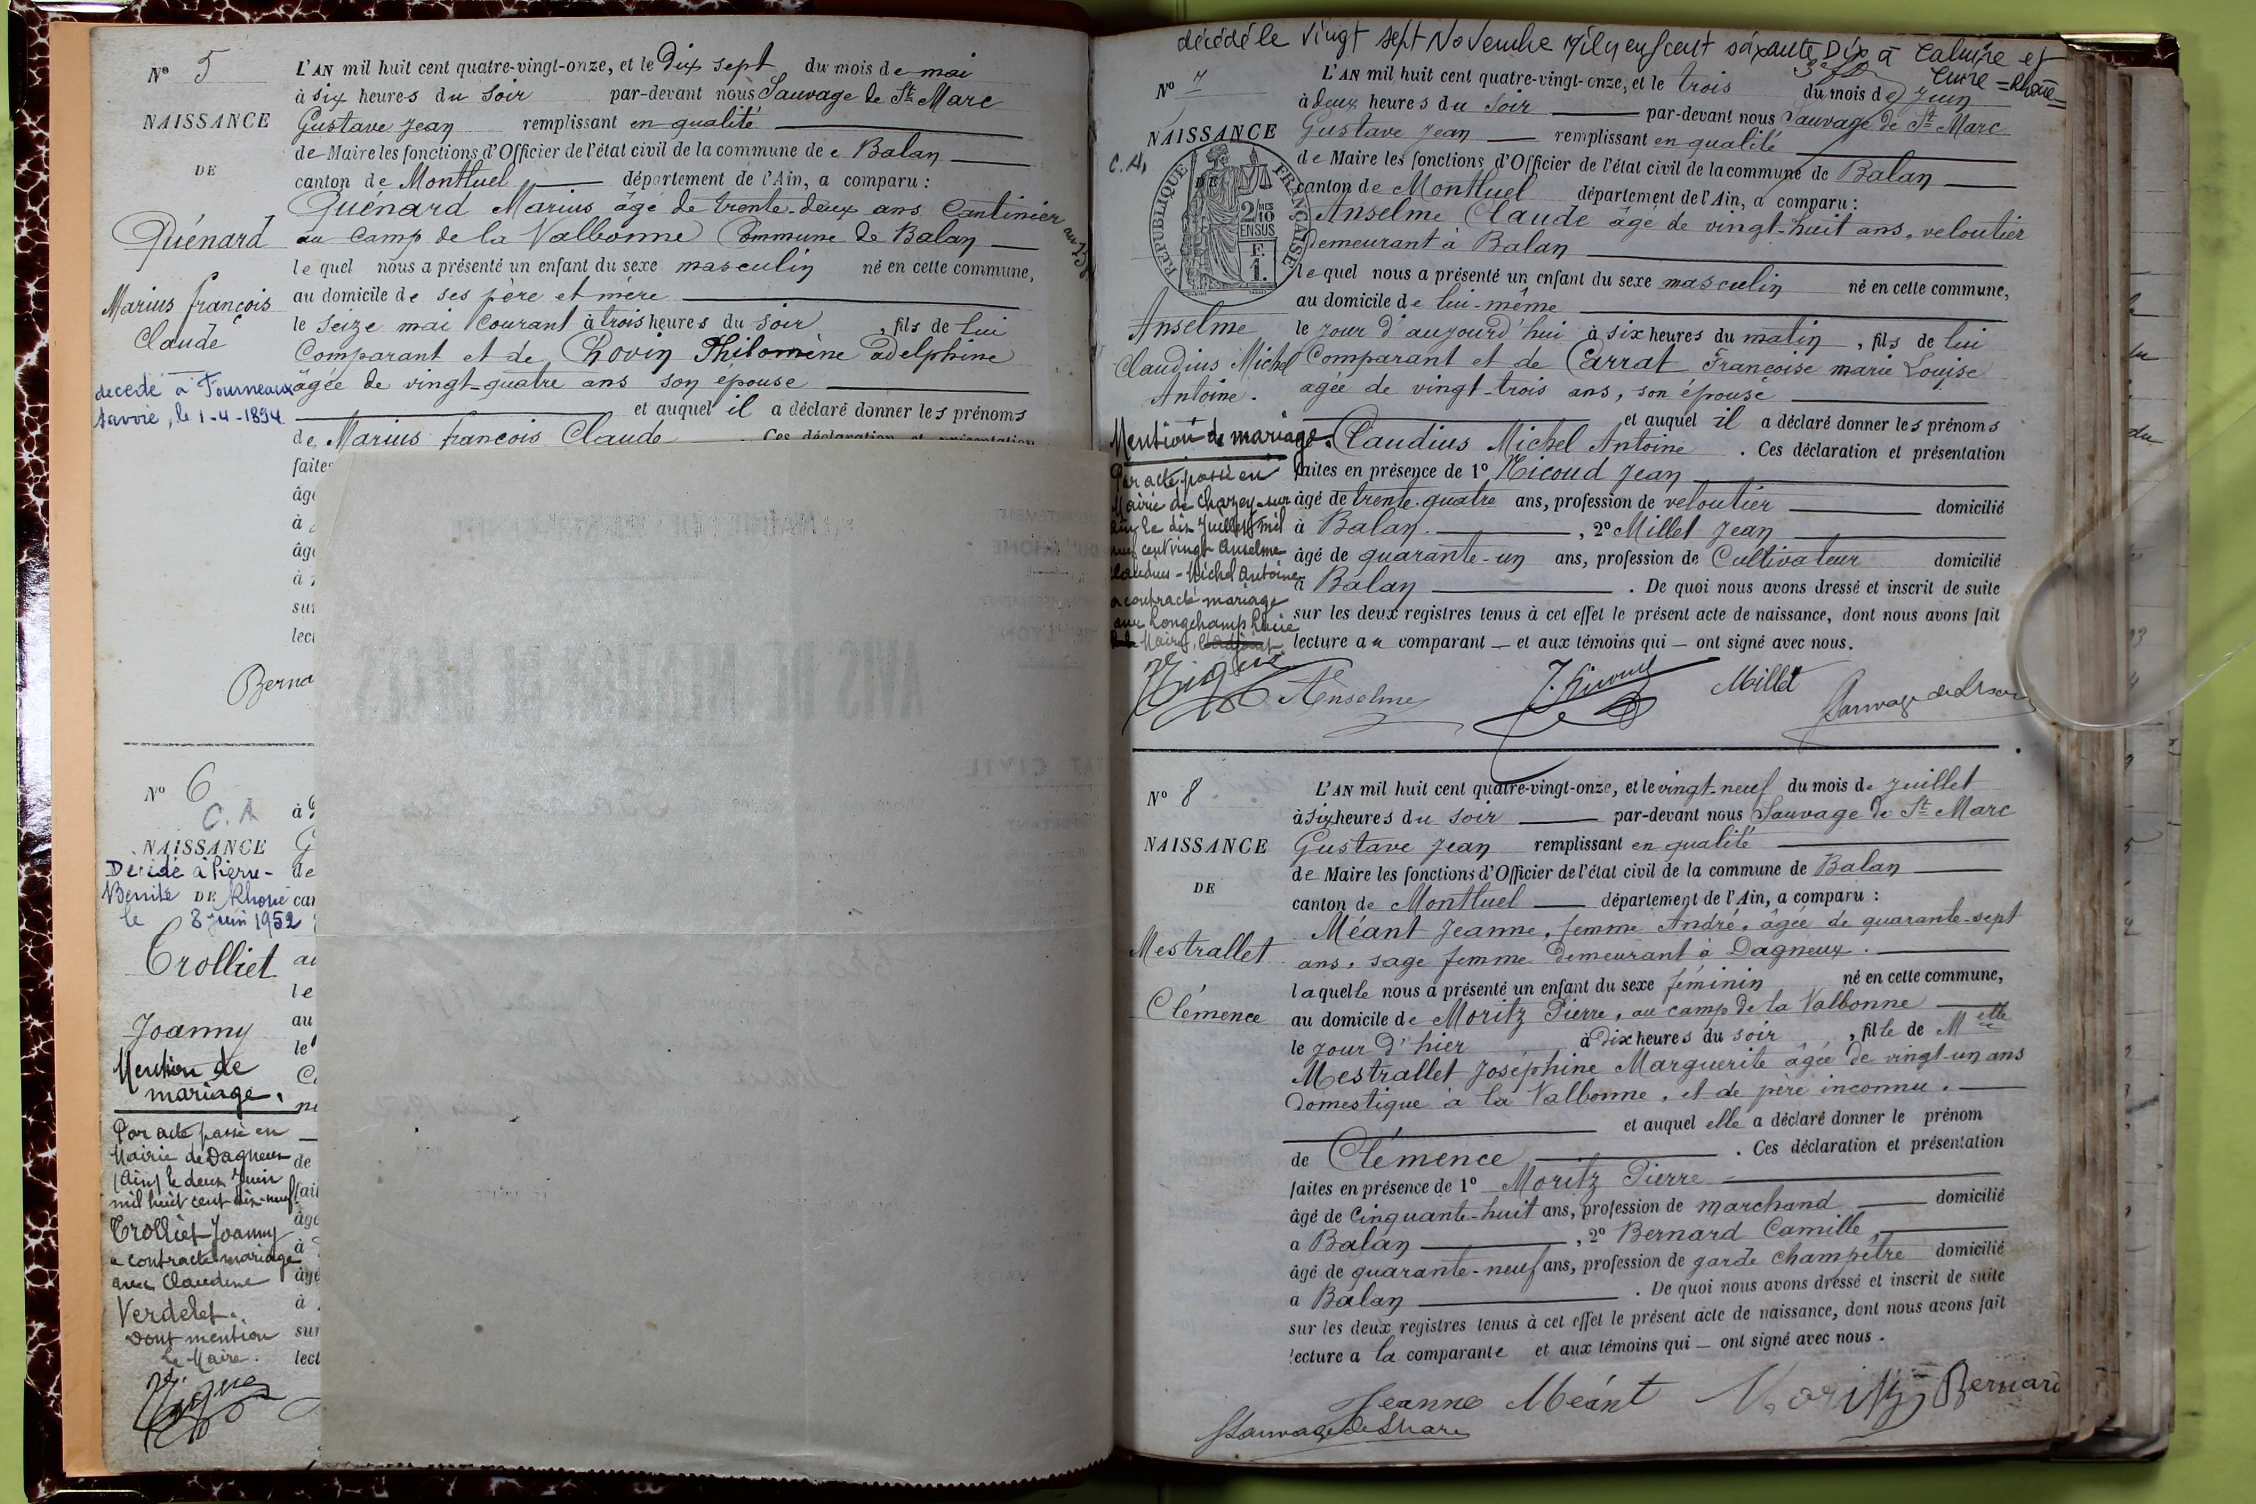 N° 5
NAISSANCE
DE
Quénard
Marius françois
Claude
decedé à Fourneaux
Savoie, le 1-4-1894
L'AN mil huit cent quatre-vingt-onze, et le Dix sept du mois de mai
à six heures du soir par-devant nous Sauvage de St Marc
Gustave Jean remplissant en qualité
de Maire les fonctions d'Officier de l'état civil de la commune de Balan
canton de Montluel département de l'Ain, a comparu :
Quénard Marius âgé de trente-deux ans Cantinier au
au camp de la Valbonne Commune de Balan
le quel nous a présenté un enfant du sexe masculin né en cette commune,
au domicile de ses père et mère
le seize mai courant à trois heures du soir, fils de lui
Comparant et de Chovin Philomène adelphine
âgée de vingt-quatre ans son épouse
et auquel il a déclaré donner les prénoms
de Marius françois Claude. Ces déclaration et présentation
faites
âgé
à
âgé
à
sur
lect
Berna
N° 6
C. A
NAISSANCE
Décidé à Pierre-
Benite DE Rhône
le 8 juin 1952
Trolliet
Joanny
Mention de
mariage.
Par acte passé en
Mairie de Dagneux
(Ain) le deux Juin
mil huit cent dix-neuf
Trolliet Joanny
a contracté mariage
avec Claudine
Verdelet.
Dont mention
Le Maire.
AVIS DE
décédé le vingt sept Novembre milneufcent soixante Dix à Caluire et
Cuire = Rhône =
N° 7
NAISSANCE
C. A.
DE
RÉPUBLIQUE FRANÇAISE
2/10 MES
EN SUS
F.
1.
Anselme
Claudius Michel
Antoine.
Mention de mariage.
Par acte passé en
Mairie de Charey-sur
Ain le dix Juillet mil
neuf cent vingt Anselme
Claudius-Michel Antoine
a contracté mariage
avec Longchamp Lucie
Le Maire,
L'AN mil huit cent quatre-vingt-onze, et le trois du mois de Juin
à deux heures du soir par-devant nous Sauvage de St Marc
Gustave Jean remplissant en qualité
de Maire les fonctions d'Officier de l'état civil de la commune de Balan
canton de Montluel département de l'Ain, a comparu :
Anselme Claude âgé de vingt-huit ans, veloutier
demeurant à Balan
le quel nous a présenté un enfant du sexe masculin né en cette commune,
au domicile de lui-même
le jour d'aujourd'hui à six heures du matin, fils de lui
Comparant et de Carrat Françoise marie Louise
agée de vingt-trois ans, son épouse
et auquel il a déclaré donner les prénoms
de Claudius Michel Antoine. Ces déclaration et présentation
faites en présence de 1° Nicoud Jean
âgé de trente-quatre ans, profession de veloutier domicilié
à Balan, 2° Millet Jean
âgé de quarante-un ans, profession de Cultivateur domicilié
à Balan. De quoi nous avons dressé et inscrit de suite
sur les deux registres tenus à cet effet le présent acte de naissance, dont nous avons fait
lecture au comparant et aux témoins qui ont signé avec nous.
Anselme J. Nicoud Millet Sauvage de St Marc
N° 8
NAISSANCE
DE
Mestrallet
Clémence
L'AN mil huit cent quatre-vingt-onze, et le vingt-neuf du mois de Juillet
à six heures du soir par-devant nous Sauvage de St Marc
Gustave Jean remplissant en qualité
de Maire les fonctions d'Officier de l'état civil de la commune de Balan
canton de Montluel département de l'Ain, a comparu :
Méant Jeanne, femme André, âgée de quarante-sept
ans, sage femme demeurant à Dagneux.
laquelle nous a présenté un enfant du sexe féminin né en cette commune,
au domicile de Moritz Pierre, au camp de la Valbonne
le jour d'hier à dix heures du soir, fille de Melle
Mestrallet Joséphine Marguerite âgée de vingt-un ans
domestique à la Valbonne, et de père inconnu.
et auquel elle a déclaré donner le prénom
de Clémence. Ces déclaration et présentation
faites en présence de 1° Moritz Pierre
âgé de Cinquante-huit ans, profession de marchand domicilié
a Balan, 2° Bernard Camille,
âgé de quarante-neuf ans, profession de garde champêtre domicilié
a Balan. De quoi nous avons dressé et inscrit de suite
sur les deux registres tenus à cet effet le présent acte de naissance, dont nous avons fait
lecture a la comparante et aux témoins qui ont signé avec nous.
Jeanne Méant Moritz Bernard
Sauvage de St Marc